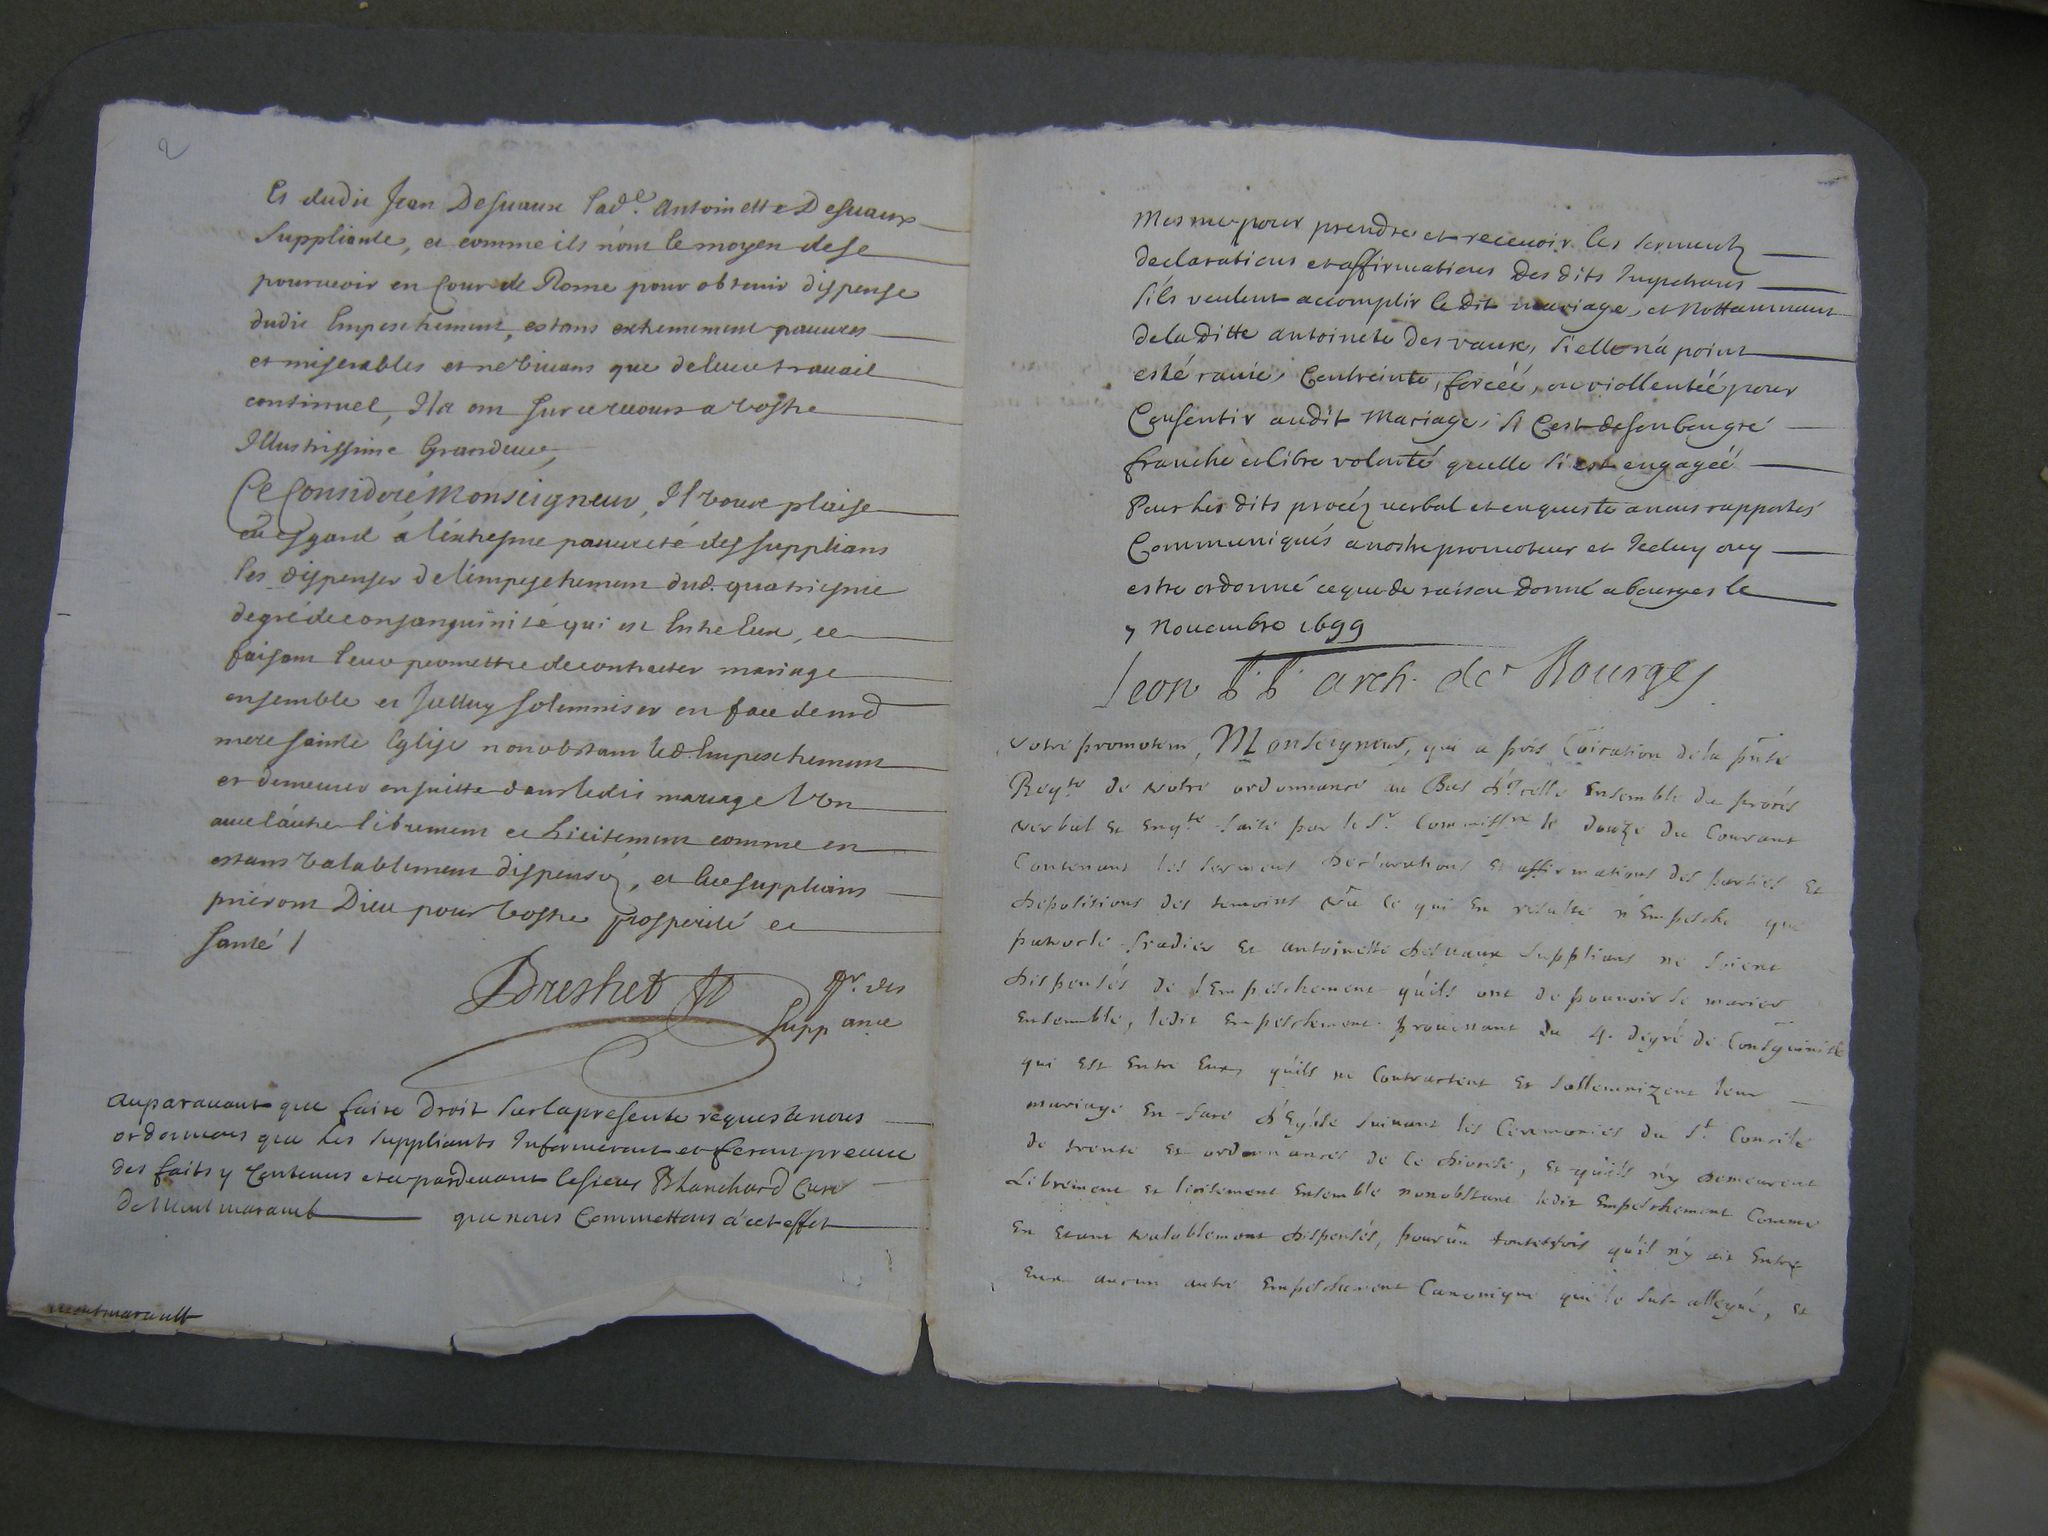 2
Et dudit Jean Desuaux lad.e Antoinette Desuaux
Suppliante, et comme ils n'ont le moyen de se
pourueoir en Cour de Rome pour obtenir dispense
dudit Empeschement, estans extremement pauures
et miserables et ne Viuans que de leur trauail
continuel, Ils ont sur ce recours a Vostre
Illustrissime Grandeur,
Ce Consideré Monseigneur, Il vous plaise
eu Esgard á l'éxtresme pauureté des supplians
les dispenser de l'empeschement dud. quatriesme
degré de consanguinité qui est Entre Eux, ce
faisant leur promettre de contracter mariage
ensemble et Jcelluy solemniser en face de nred
mere sainte Eglise nonobstant led. Empeschement
et demeurer en suitte dans ledit mariage l'Vn
auec láutre librement et Licitement comme en
estans Valablement dispensez, et les supplians
priéront Dieu pour Vostre prosperité et
santé /
Breshet
pr. des
Suppants
auparauant que faire Droit sur la presente requeste nous
ordonnons que Les Suppliants Informeront et feront preuue
des faits y Contenus et ce pardeuant le sieur Blanchard Curé
de Montmarault que nous Commettons á cet effet
montmarault
Mesme pour prendre et receuoir les serments
declarations et affirmations Des dits Impetrans
s'ils veulent accomplir le Dit mariage, et Nottamment
de la Ditte antoinete Des vaux, si elle n'á point
esté rauie, Contreinte, forcéé, ou viollentéé pour
Consentir audit Mariage, si C'est de son bon gré
franche et libre volonté quelle s'i est engagéé
Pour Les dits procéz verbal et enqueste a nous rapportés
Communiqués a nostre promoteur et Iceluy ouy
estre ordonné ce que de raison Donné a bourges le
7 Nouembre 1699
Leon P. P. arch. de Bourges
Votre promoteur, Monseigneur, qui a pris Coïcation de la pñte
Reqte de votre ordonnance au Bas d'Icelle Ensemble du procés
verbal et Enqte faite par le Sr Commissre le douze du Courant
Contenant les sermens declarations et affirmations des parties et
depositions des temoins vû ce qui en resulte n'Empesche que
Fradier et antoinette desuaux supplians ne soient
dispensés de l'Empeschement qu'ils ont de pouuoir se marier
Ensemble, ledit Empeschement prouenant du 4. degré de Consguinité
qui est Entre Eux, qu'ils ne Contractent et sollemnizent leur
mariage En face d'Eglise suiuant les Ceremonies du St Concile
de trente et ordonnances de ce diocése, et qu'ils n'y demeurent
Librement et licitement Ensemble nonobstant ledit Empeschement Comme
En Etant valablement dispensés, pourvû toutesfois qu'il n'y ait Entre
Eux aucun autre Empeschement Canonique que le sus allegué, et